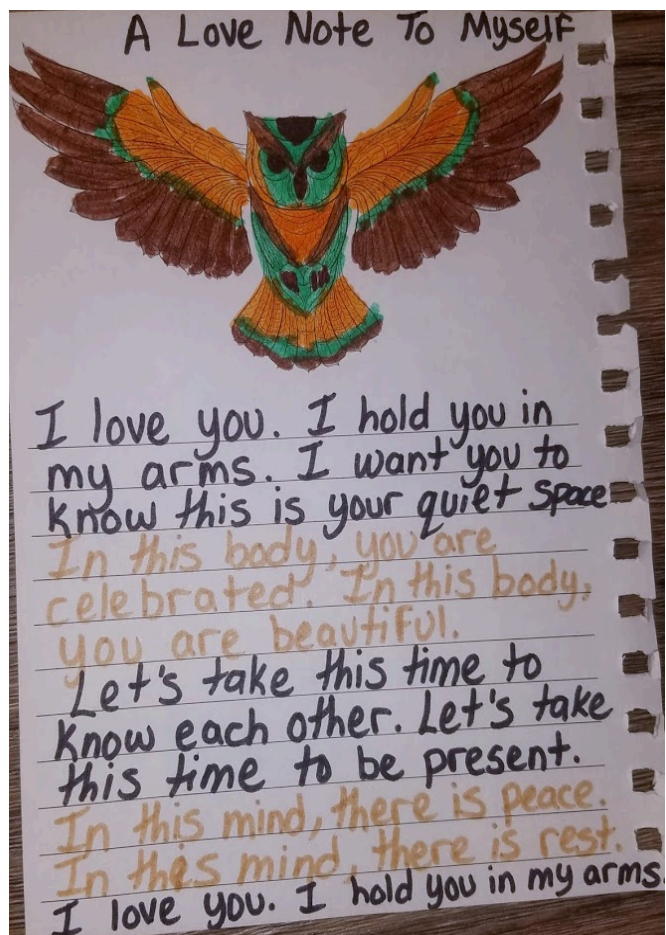 A Love Note To Myself
I love you. I hold you in
my arms. I want you to
know this is your quiet space
In this body, you are
celebrated. In this body,
you are beautiful.
Let's take this time to
know each other. Let's take
this time to be present.
In this mind, there is peace.
In this mind, there is rest.
I love you. I hold you in my arms.